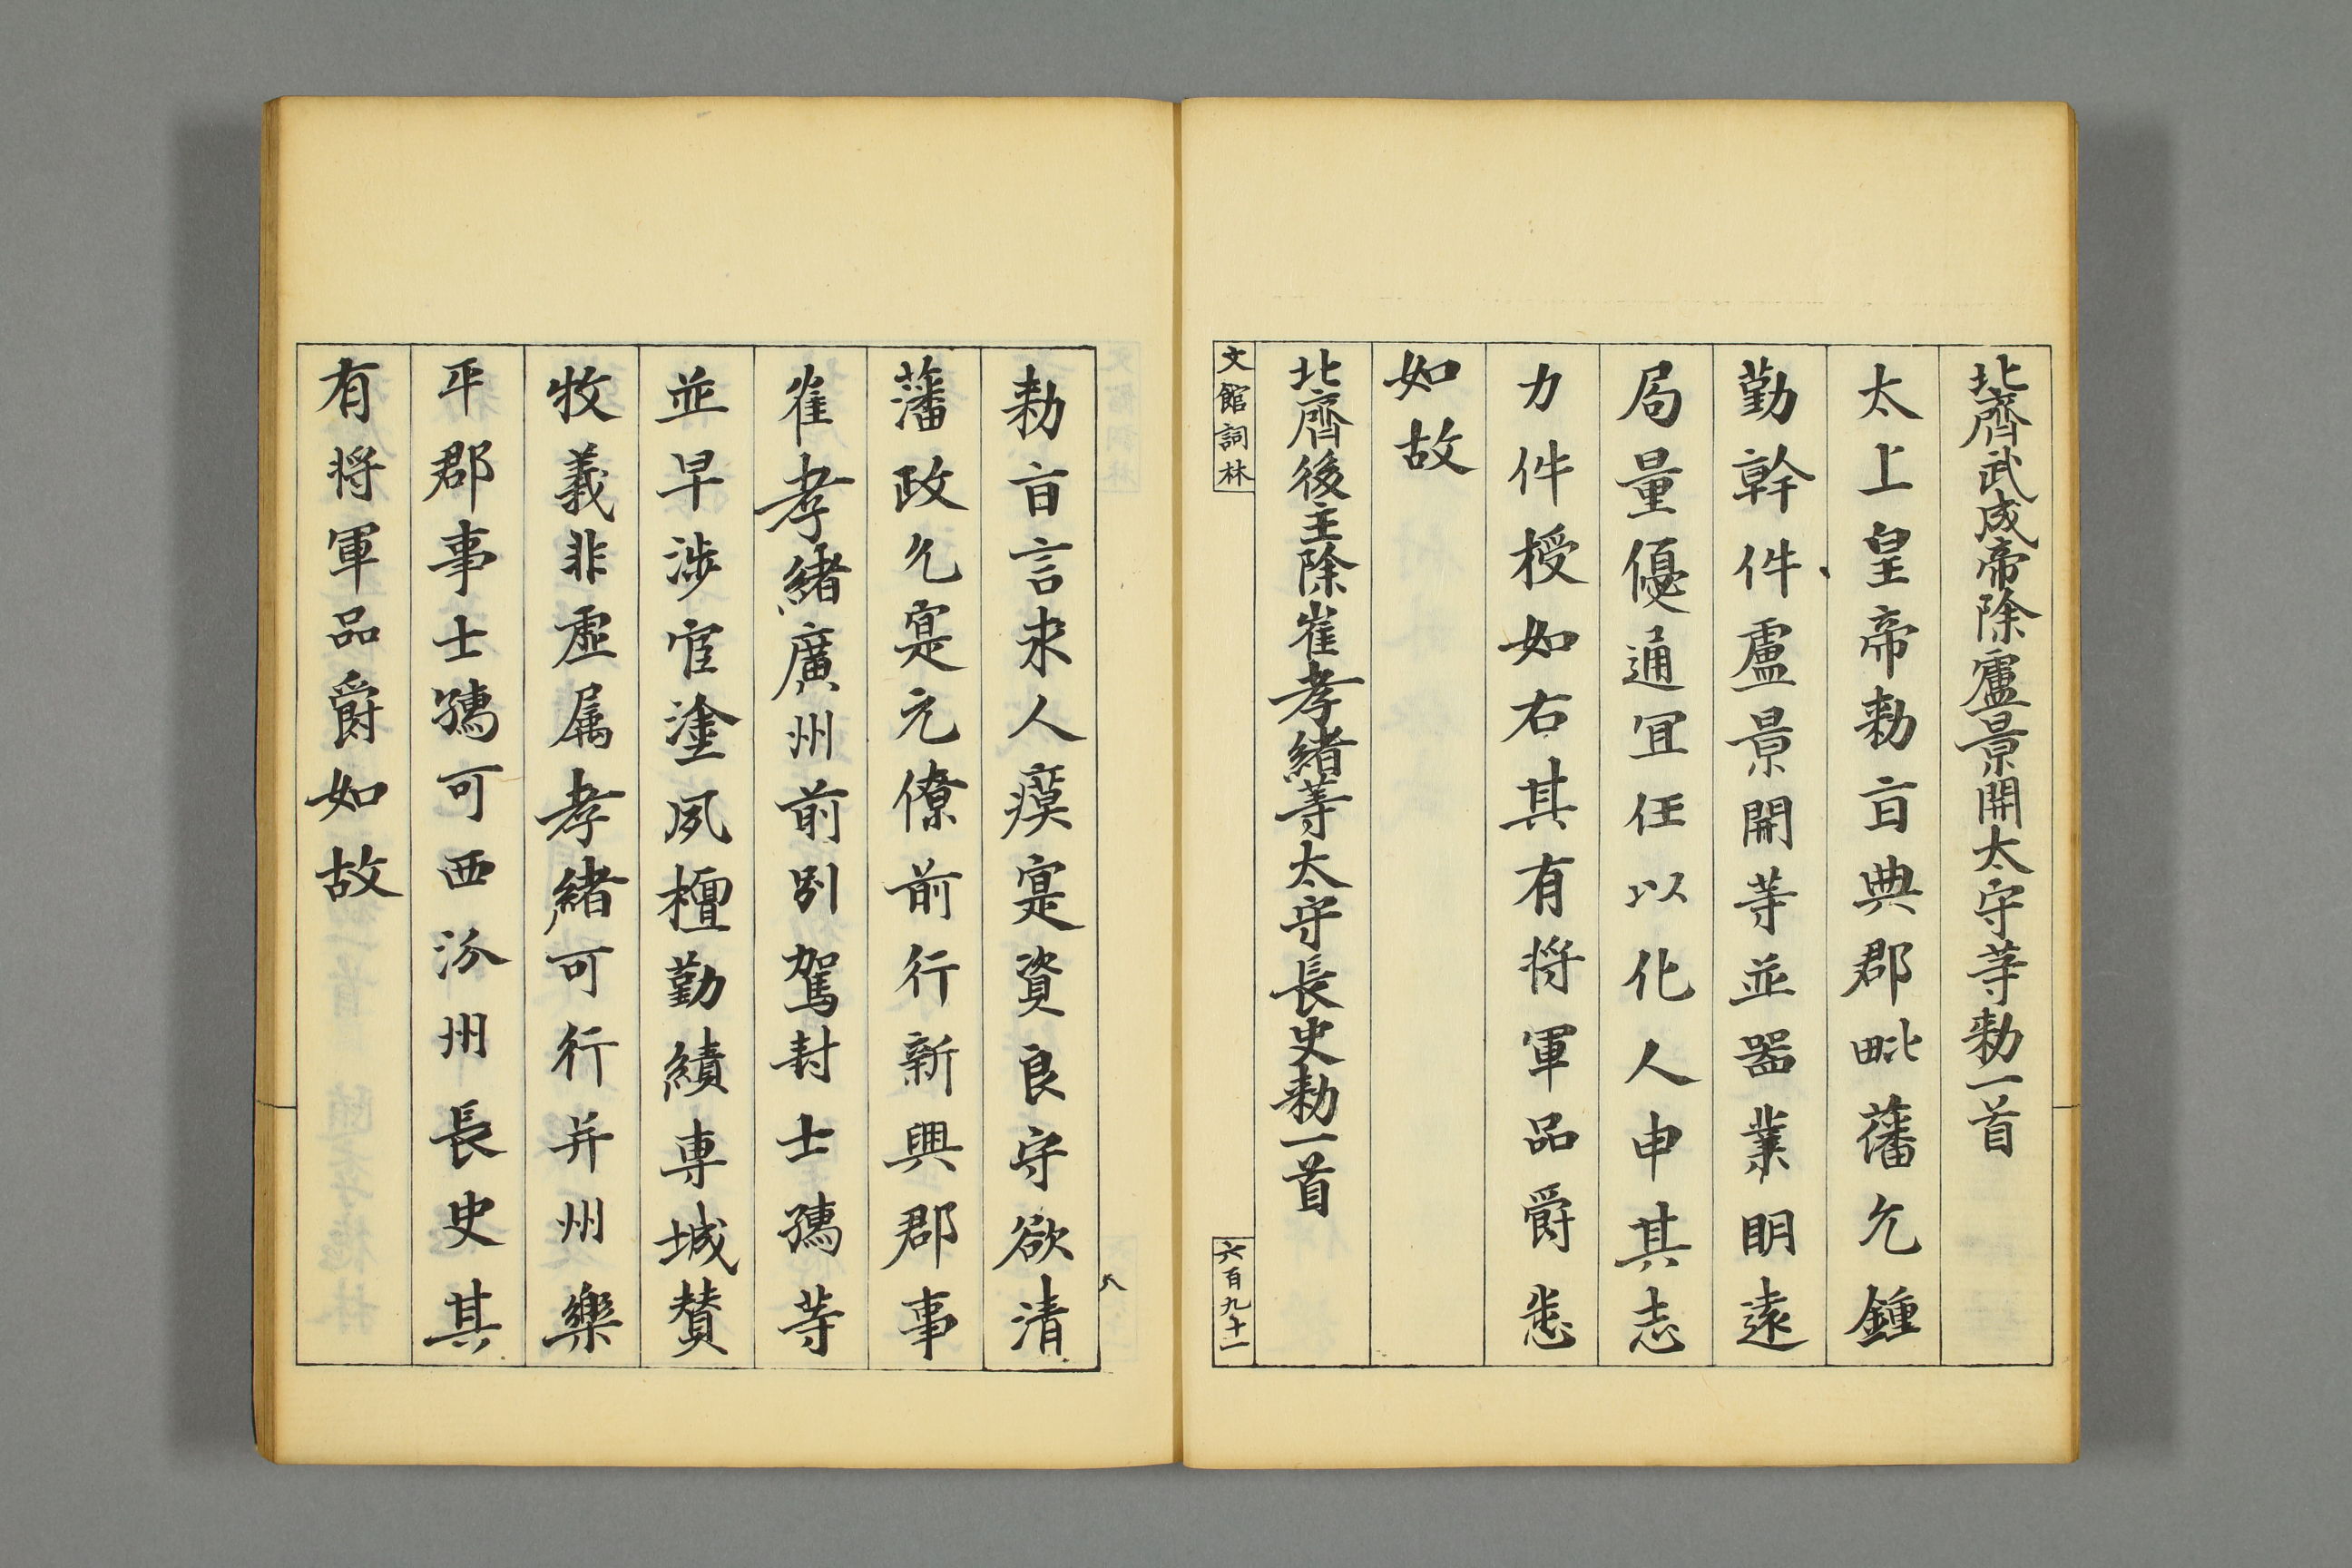 北齊武成帝除盧景開太守等勅一首
太上皇帝勅旨典郡毗藩允鍾
勤幹件盧景開等並器業明遠
局量優通宜任以化人申其志
力件授如右其有將軍品爵悉
如故
北齊後主除崔孝緒等太守長史勅一首
文館詞林
六百九十一
勅旨言求人瘼寔資良守欲清
藩政允寔元僚前行新興郡事
崔孝緒廣州前別駕封士孺等
並早涉宦塗夙檀勤績專城贊
牧義非虛属孝緒可行并州樂
平郡事士孺可西汾州長史其
有将軍品爵如故
八